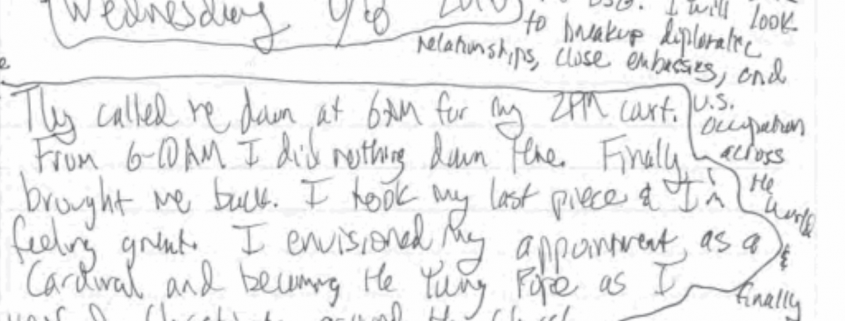 Wednesday
to
I will look
to breakup diplomatic
relationships, close embassies, and
U.S.
occupation
across
the
world
&
finally
They called me down at 6AM for my 2PM court.
From 6-10AM I did nothing down there. Finally
brought me back. I took my last piece & I'm
feeling great. I envisioned my appointment as a
Cardinal and becoming the Young Pope as I